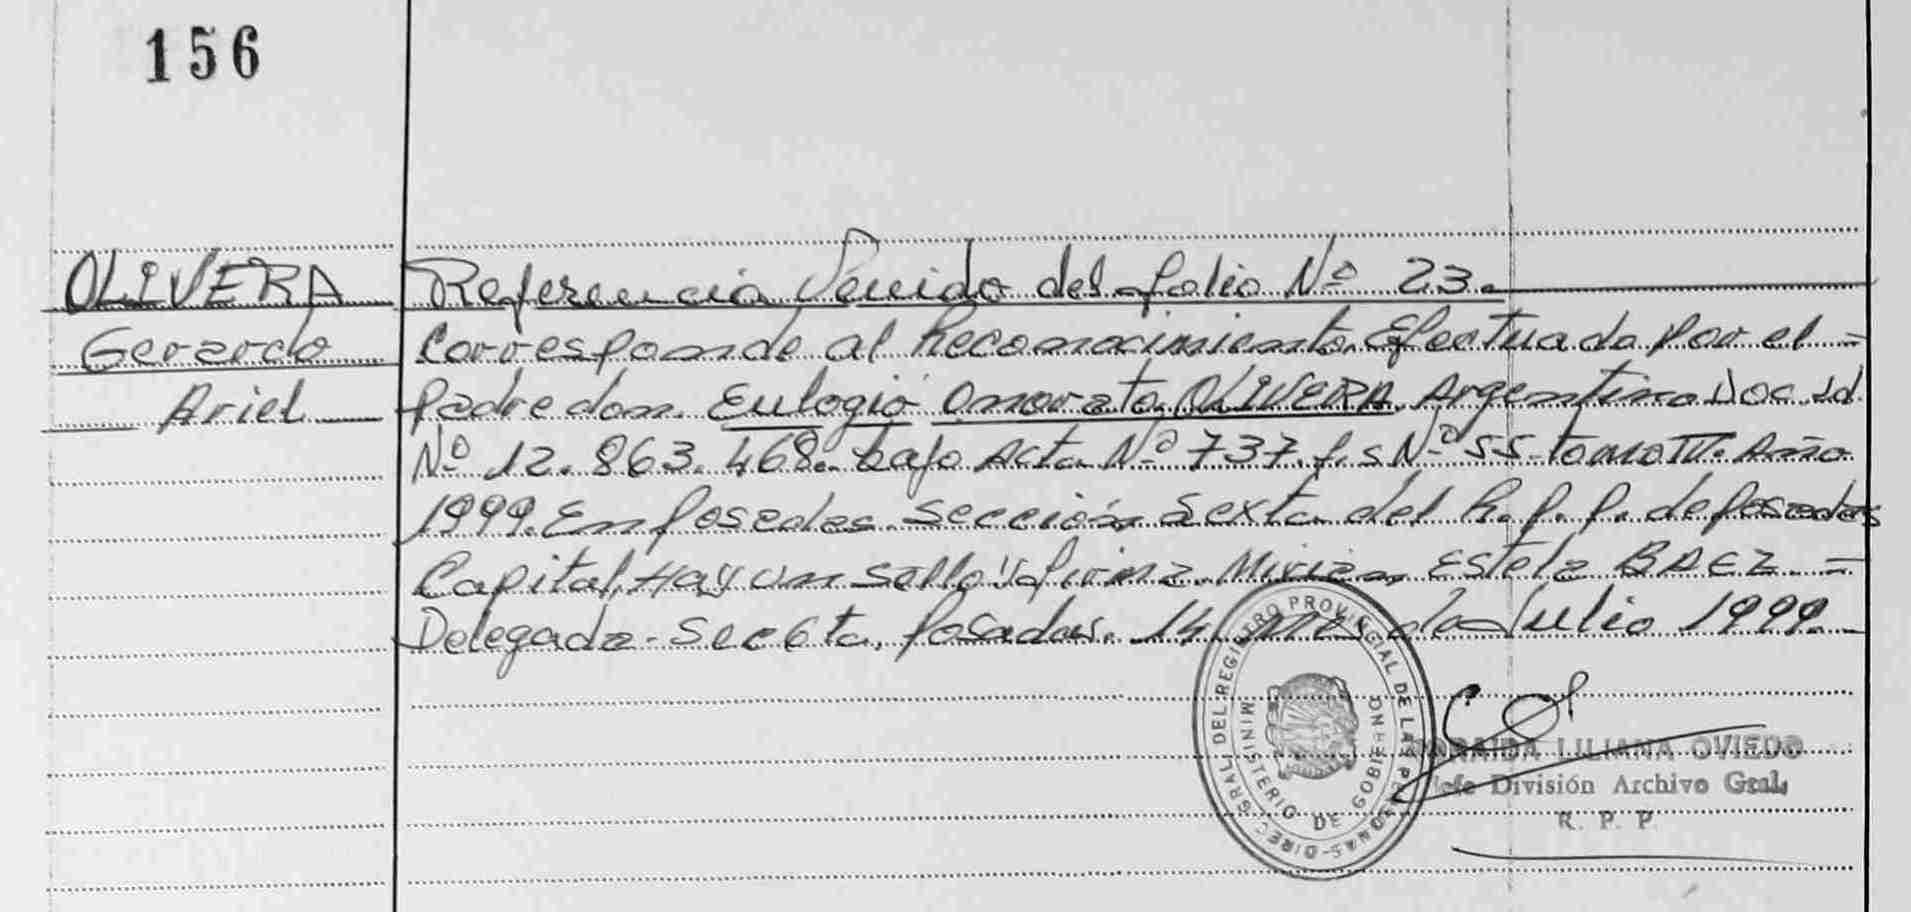 156
OLIVERA
Gerardo
Ariel
Referencia Venido del folio Nº 23.
Corresponde al Reconocimiento Efectuado por el =
Padre don. Eulogio Onorato OLIVERA, Argentino Doc. Id.
Nº 12.863.468. bajo Acta Nº 737. f.s Nº 55 tomo IV. Año
1999. En Posadas. Sección Sexta del R.P.P. de Posadas
Capital, Hay un sello y firma. Mirian Estela BAEZ. =
Delegada - Sec 6ta, Posadas. 14 de Julio 1999.
DIREC. GRAL. DEL REGISTRO PROVINCIAL DE LAS PERSONAS
MINISTERIO DE GOBIERNO
LILIANA OVIEDO
Jefe División Archivo Gral.
R. P. P.